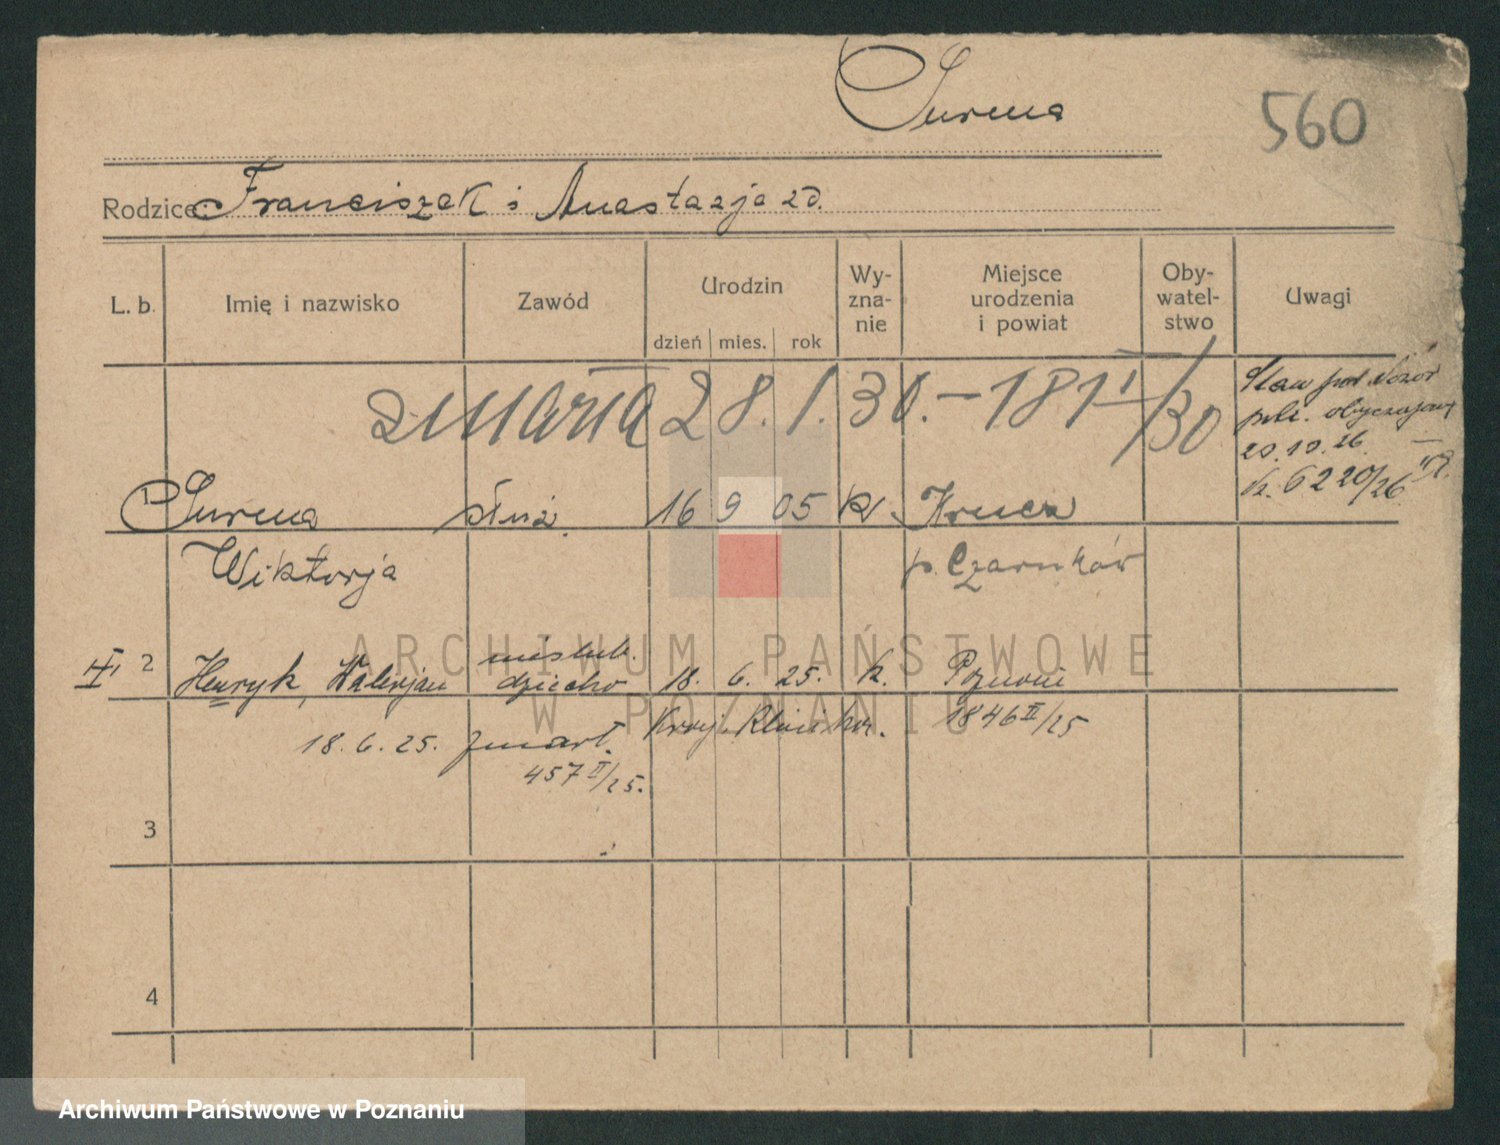 Surma
560
Rodzice: Franciszek i Anastazja zd.
L. b. Imię i nazwisko Zawód Urodzin dzień mies. rok Wyznanie Miejsce urodzenia i powiat Obywatelstwo Uwagi
zmarła 28. 1. 30. – 181 I/30
Staw pod dozór
pol. obyczajową
20.10.26.
k. 6220/26
1 Surma służ. 16 9 05 k. Krucz
Wiktorja p. Czarnków
2 Henryk, Walerjan nieślub. dziecko 18. 6. 25. k. Poznań
18. 6. 25. zmarł. 1846 II/25
457 II/25.
3
4
ARCHIWUM PAŃSTWOWE
W POZNANIU
Archiwum Państwowe w Poznaniu